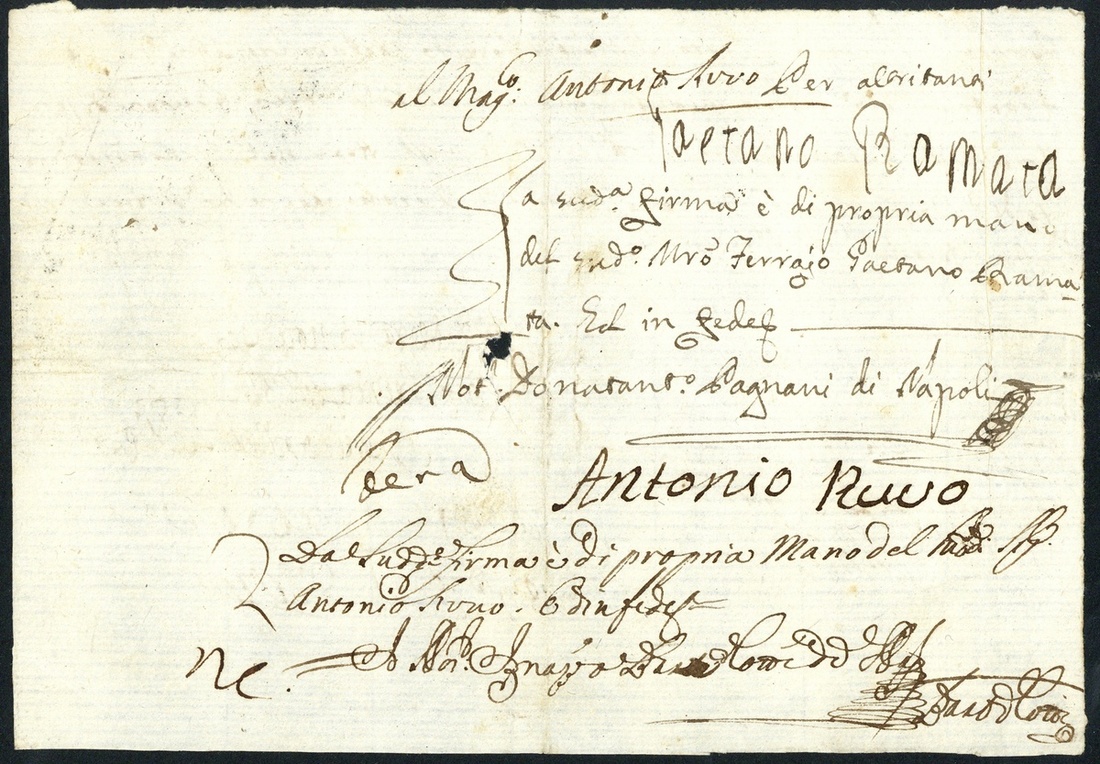 al Mag.co Antonio Ruvo Per altritanti
Gaetano Ramata
La sud.a firma è di propria mano
del sud.o Mro Ferrajo Gaetano Rama
ta. Ed in fede
Not.r Donatant.o Pagnani di Napoli
Antonio Ruvo
La Sudd.e firma è di propria Mano del
Antonio Ruvo. Ed in fede
Io Not.r Ignazio